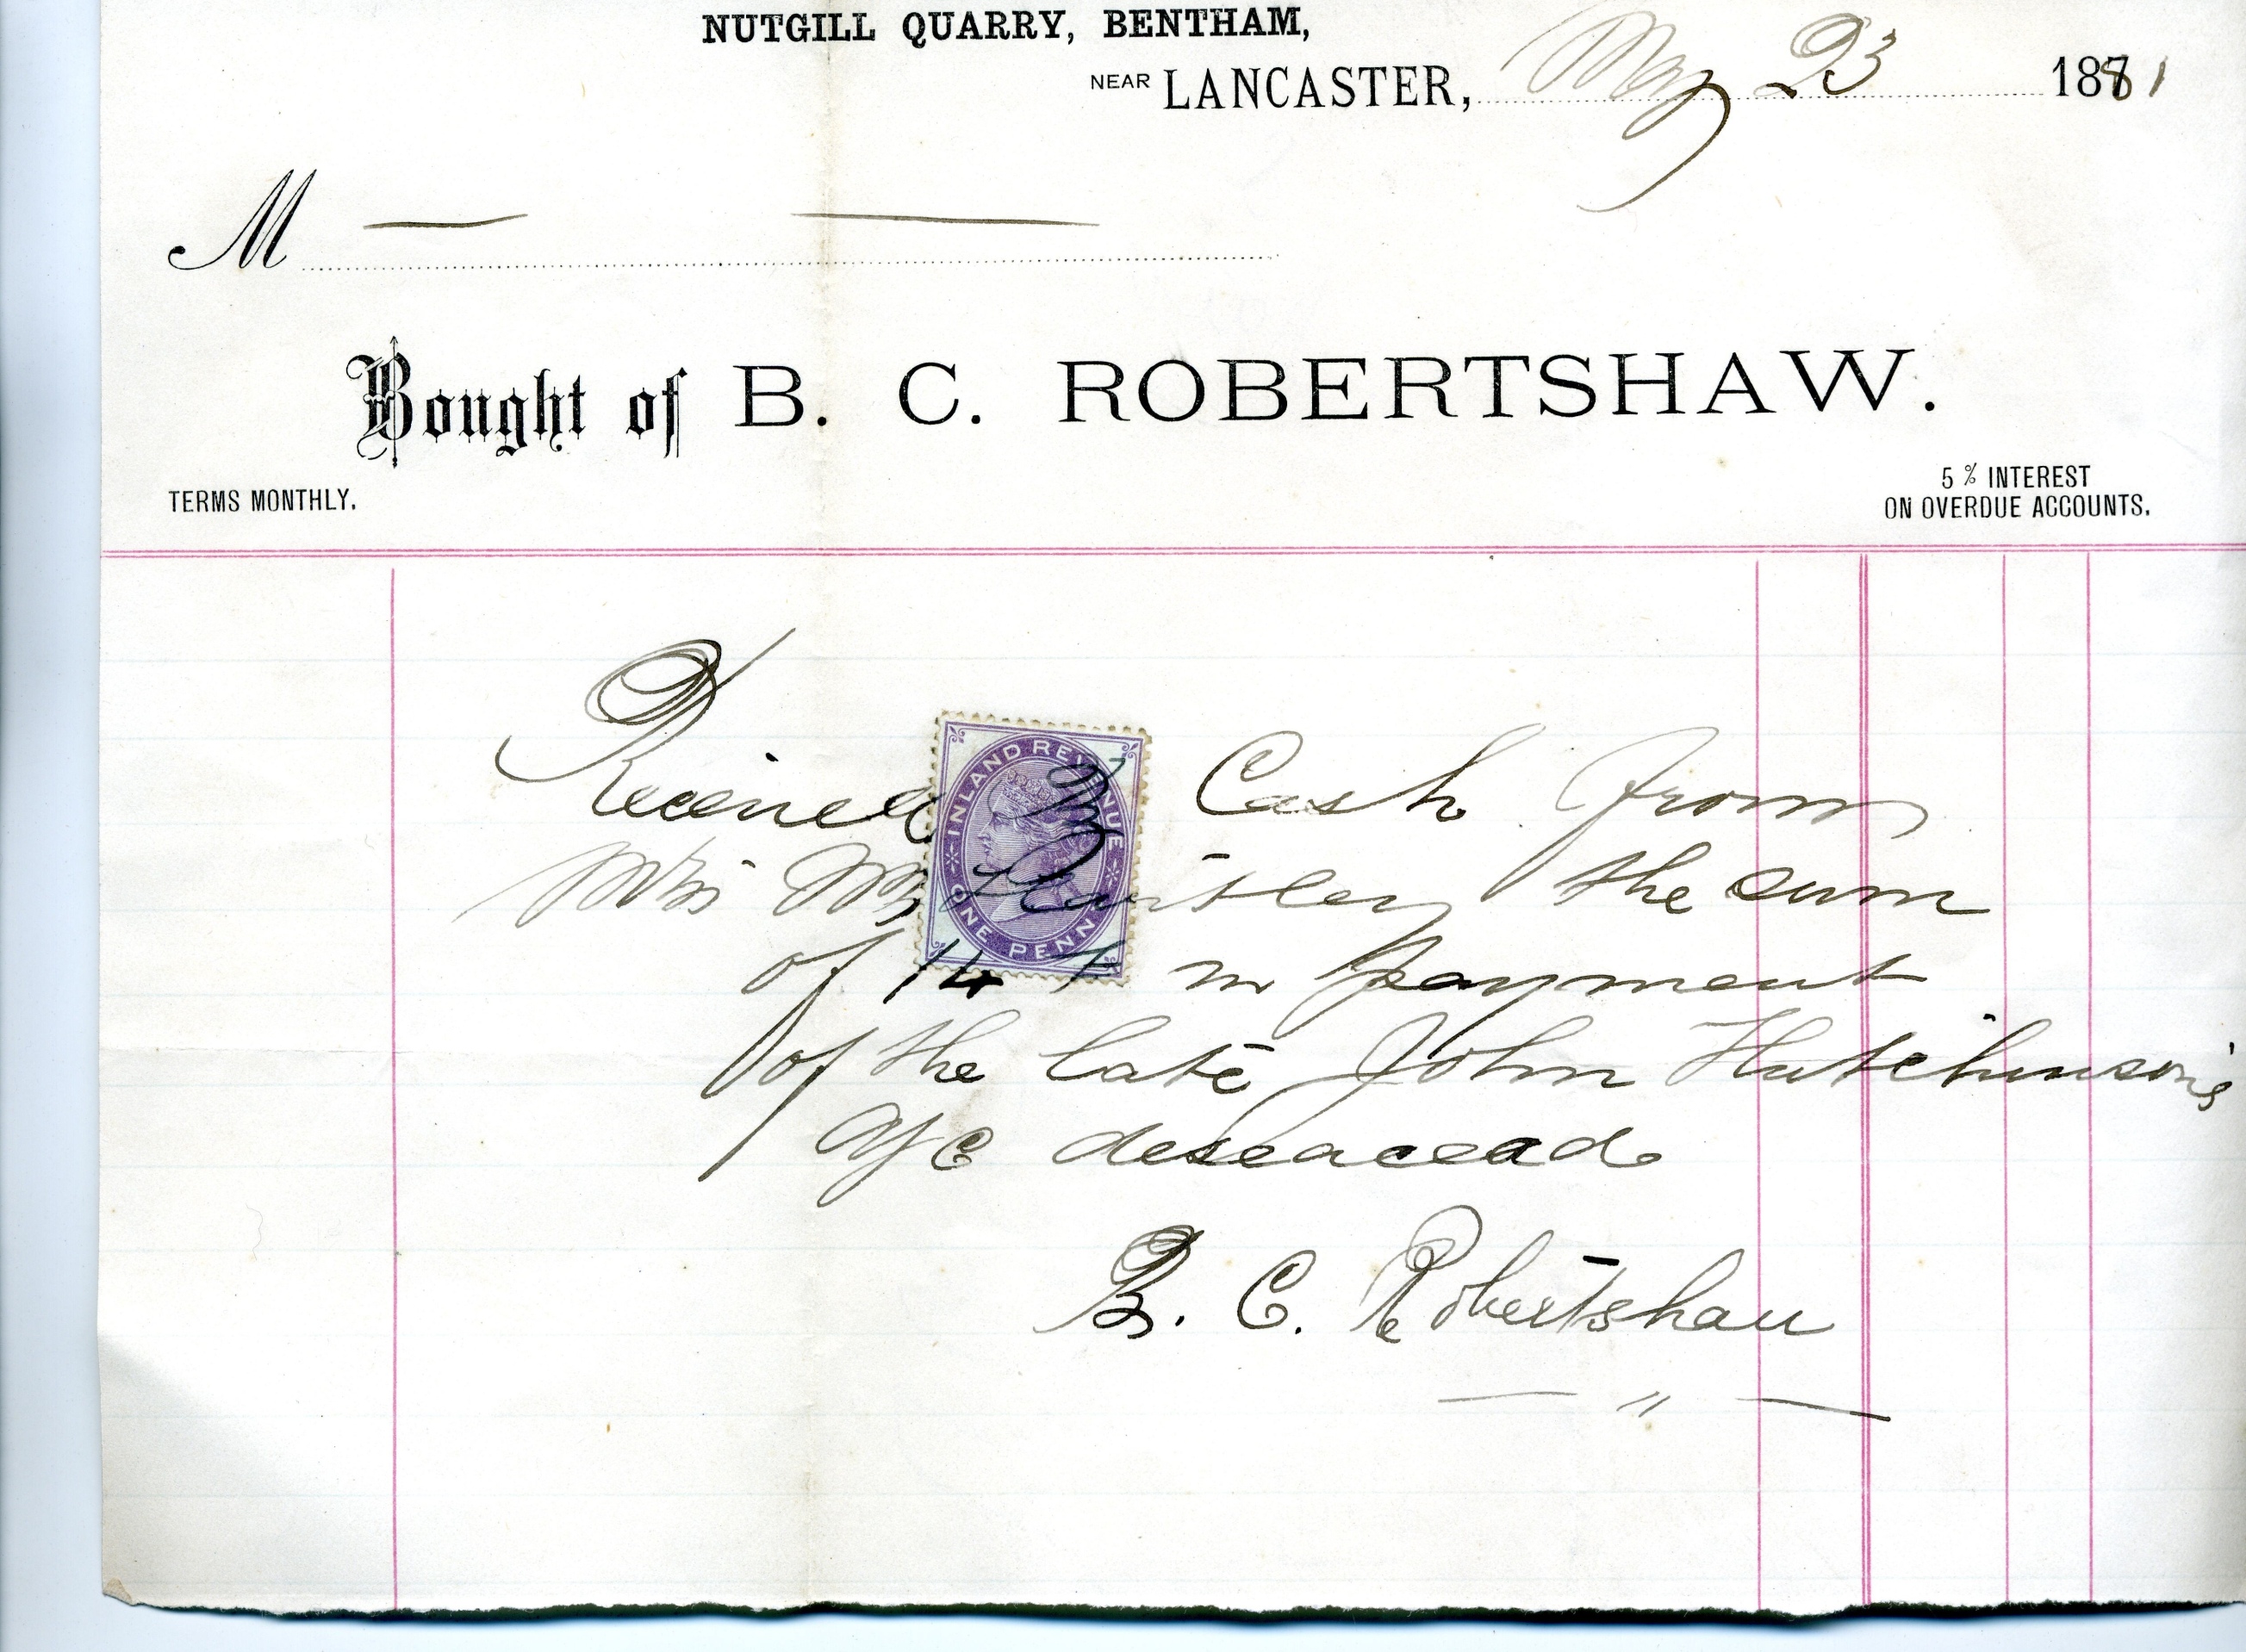 NUTGILL QUARRY, BENTHAM,
NEAR LANCASTER, May 23 1881
M
Bought of B. C. ROBERTSHAW.
TERMS MONTHLY.
5 % INTEREST
ON OVERDUE ACCOUNTS.
INLAND REVENUE
ONE PENNY
Received Cash from
the sum
of 14 in payment
of the late John Hutchinson's
a/c deseacead
B. C. Robertshaw